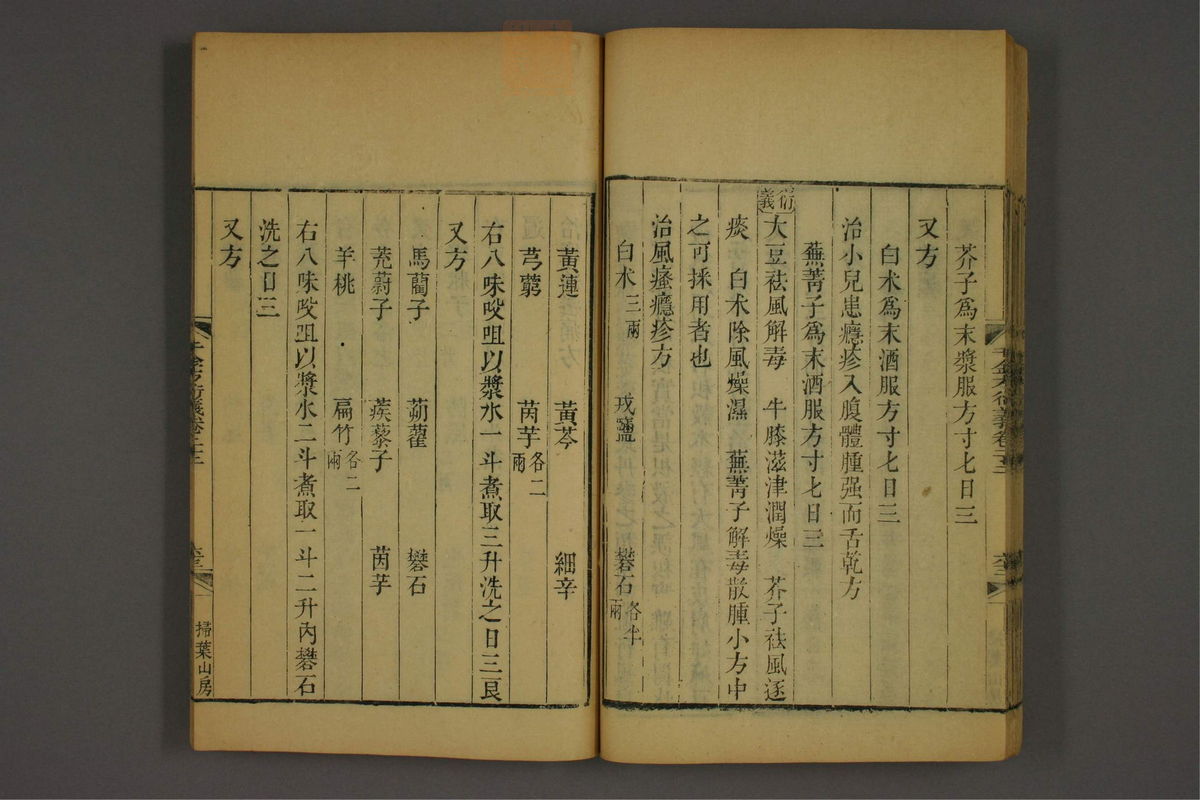 芥子爲末漿服方寸七日三
又方
白朮爲末酒服方寸七日三
治小兒患癮疹入腹體腫强而舌乾方
蕪菁子爲末酒服方寸七日三
衍義 大豆祛風解毒 牛膝滋津潤燥 芥子祛風逐
痰 白朮除風燥濕 蕪菁子解毒散腫小方中
之可採用者也
治風瘙癮疹方
白朮三兩 戎鹽 礬石各半兩
黃連 黃芩 細辛
芎藭 茵芋各二兩
右八味㕮咀以漿水一斗煮取三升洗之日三良
又方
馬藺子 蒴藋 礬石
茺蔚子 蒺藜子 茵芋
羊桃 扁竹各二兩
右八味㕮咀以漿水二斗煮取一斗二升內礬石
洗之日三
又方
千金方衍義卷二十二
掃葉山房